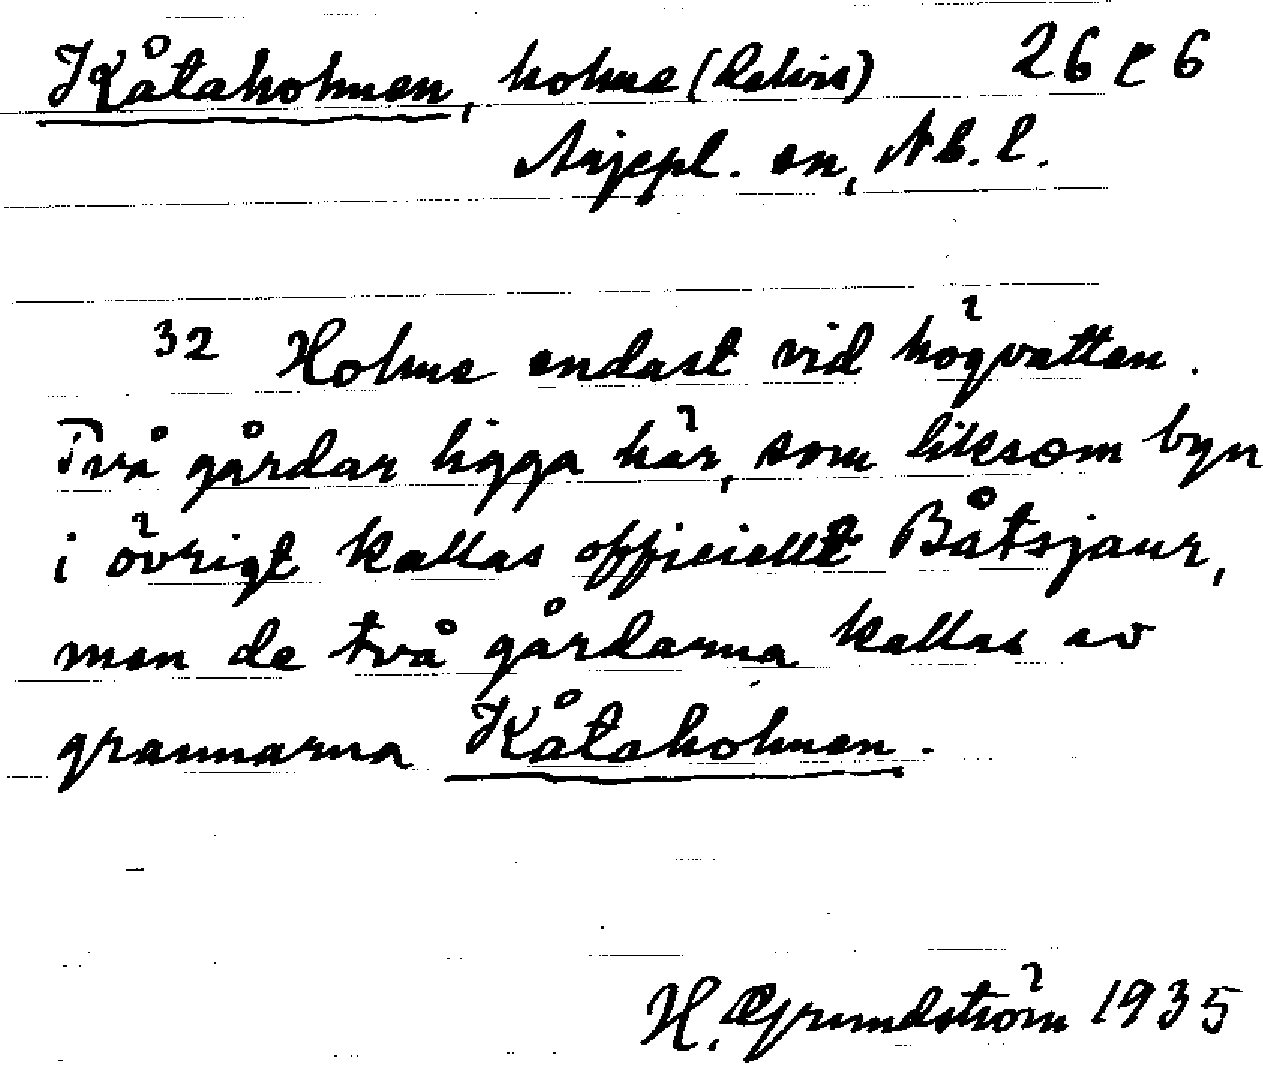 Kåtaholmen, holme (delvis) 26 e 6
Arjepl. sn, Nb. l.
32 Holme endast vid högvatten.
Två gårdar ligga här, som liksom byn
i övrigt kallas officiellt Båtsjaur,
men de två gårdarna kallas av
grannarna Kåtaholmen.
H. Grundström 1935